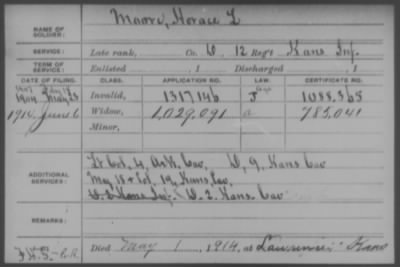 NAME OF SOLDIER: Moore, Horace L
SERVICE: Late rank, Co. D, 12 Reg't Kans Inf.
TERM OF SERVICE: Enlisted , 1 Discharged , 1
DATE OF FILING. CLASS. APPLICATION NO. LAW. CERTIFICATE NO.
1904 May 23 Invalid, 1317146 1088.368
1914, June 6 Widow, 1,029,091 a 783,041
Minor,
ADDITIONAL SERVICES: Lt Col, 4, Ark. Cav, D, 9, Kans Cav
Maj 18 & Col, 19, Kans, Cav,
Kans Inf. D. 2, Kans. Cav
REMARKS:
Died May 1, 1914, at Lawrence Kans